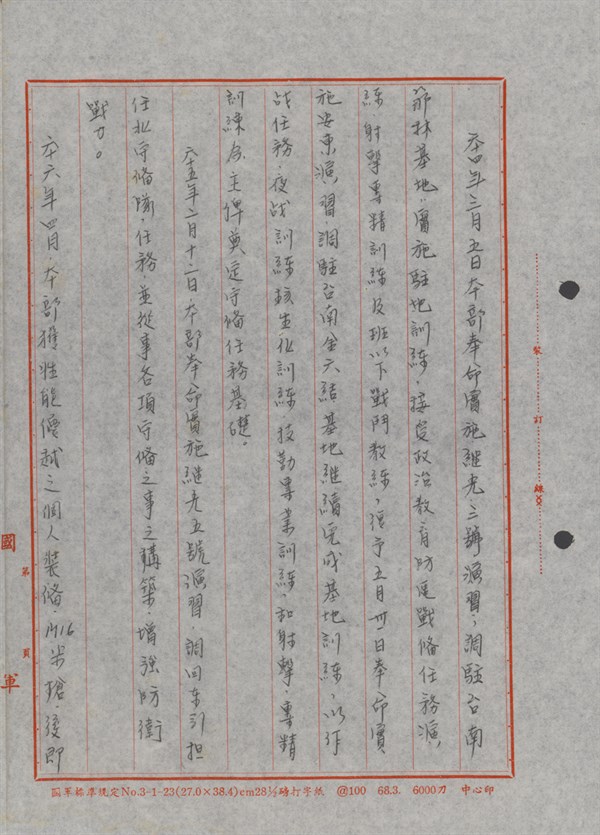 六四年三月五日本部奉命實施繼光三號演習，調駐台南
節林基地，實施駐地訓練，接受政治教育防區戰備任務演
練射擊專精訓練及班以下戰鬥教練，復于五月卅一日奉命實
施安東演習，調駐台南金六結基地繼續完成基地訓練，以作
战任務，夜战訓練核生化訓練技勤專業訓練，和射擊，專精
訓練為主俾奠定守備任務基礎。
六五年二月十二日本部奉命實施繼光五號演習，調回東引担
任北守備隊，任務，並從事各項守備之事之構築，增強防衛
戰力。
六六年四月，本部獲性能優越之個人裝備，M16步槍，後即
裝 訂 線
國 軍
第 頁
國軍標準規定No.3-1-23(27.0×38.4)cm28½磅打字紙 @100 68.3. 6000刀 中心印